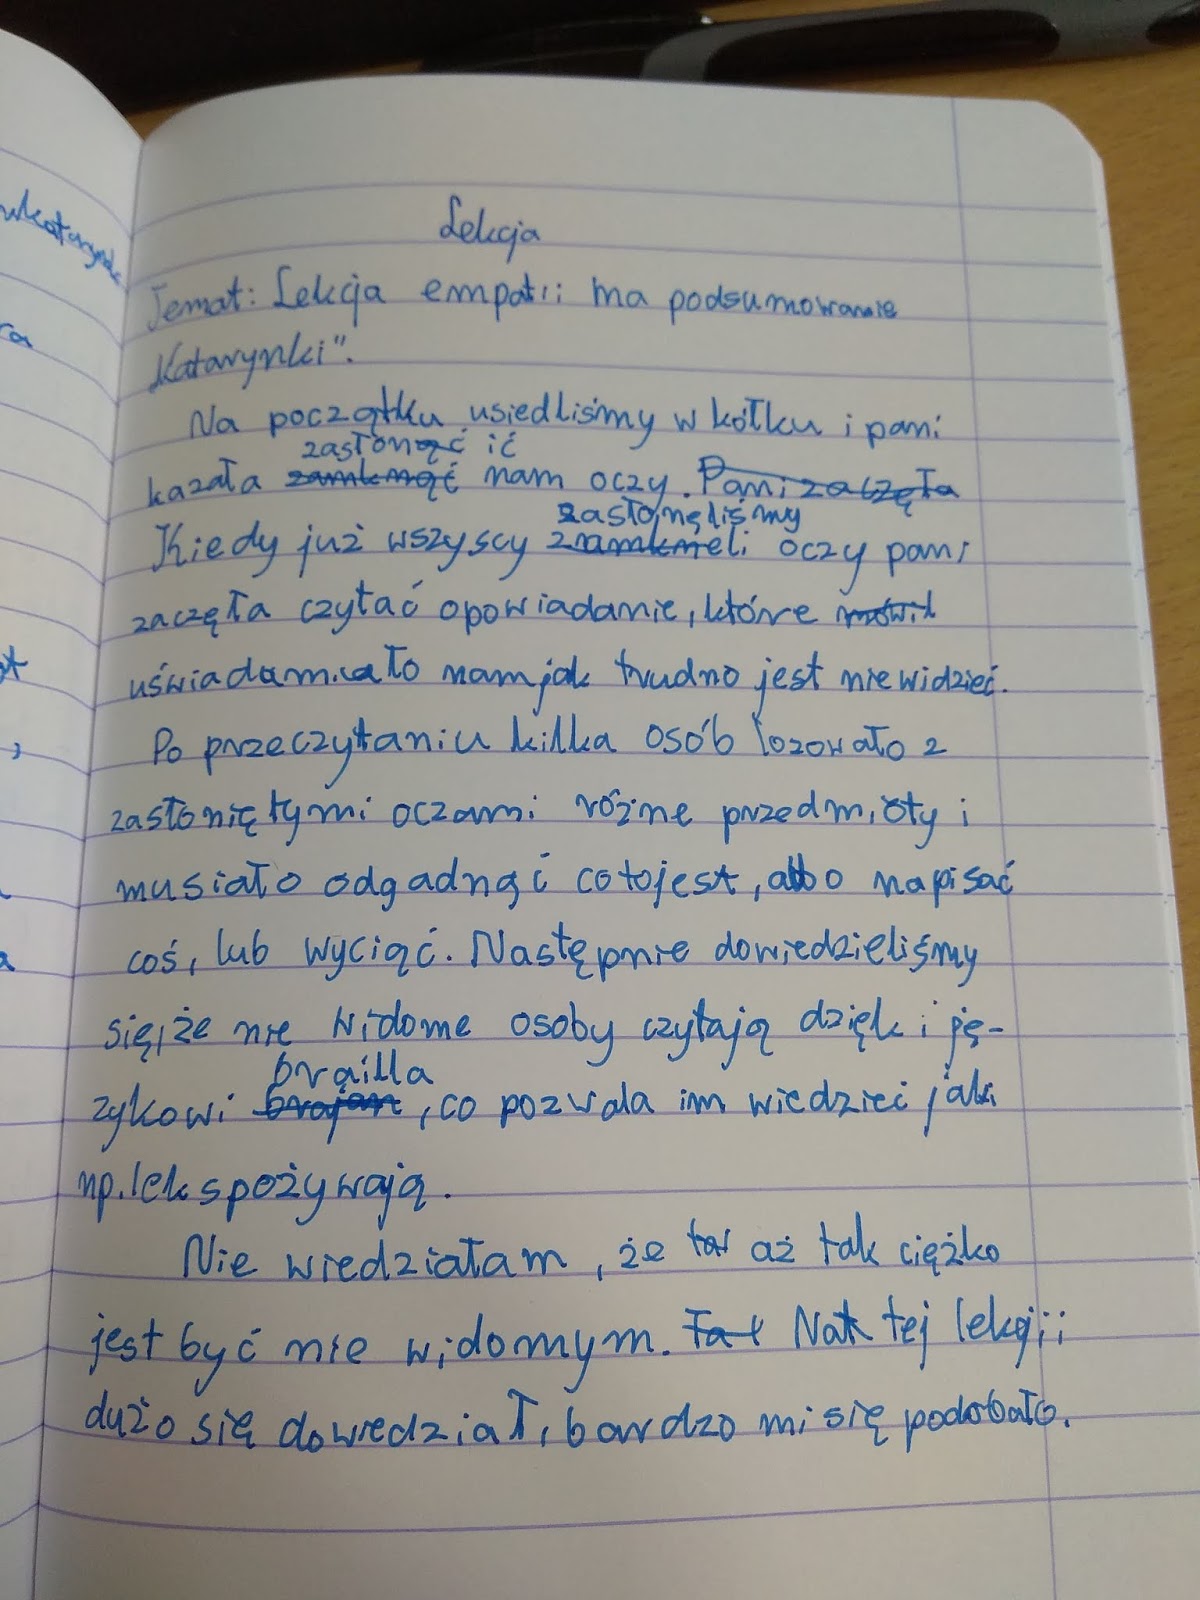 Lekcja
Temat: Lekcja empatii na podsumowanie
"Katarynki".
Na początku usiedliśmy w kółku i pani
zasłonąć ić
kazała zamknąć nam oczy. Pani zaczęła
zasłonęliśmy
Kiedy już wszyscy zamkneli oczy pani
zaczęła czytać opowiadanie, które mówił
uświadamiało nam jak trudno jest nie widzieć.
Po przeczytaniu kilka osób lozowało z
zasłoniętymi oczami różne przedmioty i
musiało odgadnąć co to jest, albo napisać
coś, lub wyciąć. Następnie dowiedzieliśmy
się, że nie widome osoby czytają dzięki ję-
brailla
zykowi, co pozwala im wiedzieć jaki
np. lek spożywają.
Nie wiedziałam, że aż tak ciężko
jest być nie widomym. Na tej lekcji
dużo się dowiedział, bardzo mi się podobało.